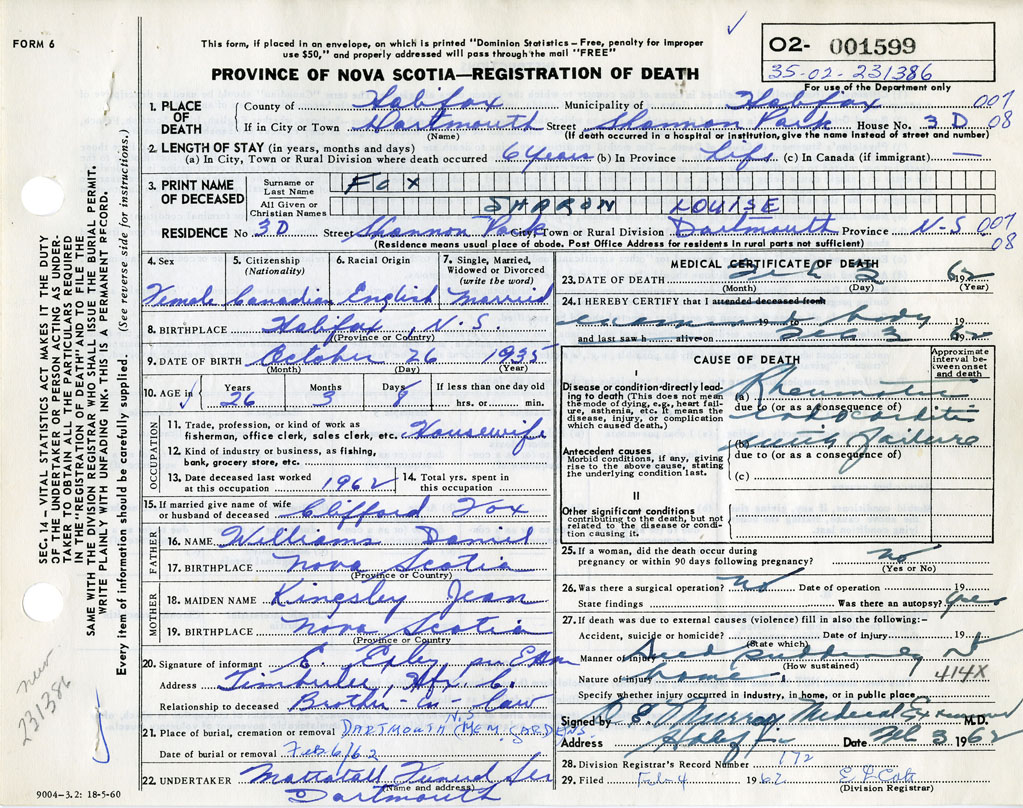 FORM 6
This form, if placed in an envelope, on which is printed "Dominion Statistics – Free, penalty for improper
use $50," and properly addressed will pass through the mail "FREE"
PROVINCE OF NOVA SCOTIA—REGISTRATION OF DEATH
O2- 001599
35-02-231386
For use of the Department only
SEC. 14.—VITAL STATISTICS ACT MAKES IT THE DUTY
OF THE UNDERTAKER OR PERSON ACTING AS UNDER-
TAKER TO OBTAIN ALL THE PARTICULARS REQUIRED
IN THE "REGISTRATION OF DEATH" AND TO FILE THE
SAME WITH THE DIVISION REGISTRAR WHO SHALL ISSUE THE BURIAL PERMIT.
WRITE PLAINLY WITH UNFADING INK. THIS IS A PERMANENT RECORD.
Every item of information should be carefully supplied. (See reverse side for instructions.)
231386
1. PLACE OF DEATH
County of Halifax Municipality of Halifax 007
If in City or Town Dartmouth Street Shannon Park House No. 3 D 08
(Name) (If death occurred in a hospital or institution, give the name instead of street and number)
2. LENGTH OF STAY (in years, months and days)
(a) In City, Town or Rural Division where death occurred 6 years (b) In Province Life (c) In Canada (if immigrant) —
3. PRINT NAME OF DECEASED
Surname or Last Name FOX
All Given or Christian Names SHARON LOUISE
RESIDENCE No 3D Street Shannon Park City, Town or Rural Division Dartmouth Province N-S 007
08
(Residence means usual place of abode. Post Office Address for residents in rural parts not sufficient)
4. Sex 5. Citizenship (Nationality) 6. Racial Origin 7. Single, Married, Widowed or Divorced (write the word)
Female Canadian English Married
8. BIRTHPLACE Halifax, N.S.
(Province or Country)
9. DATE OF BIRTH October 26 1935
(Month) (Day) (Year)
10. AGE in Years 26 Months 3 Days 8 If less than one day old hrs. or min.
OCCUPATION
11. Trade, profession, or kind of work as
fisherman, office clerk, sales clerk, etc. Housewife
12. Kind of industry or business, as fishing,
bank, grocery store, etc.
13. Date deceased last worked at this occupation 1962 14. Total yrs. spent in this occupation
15. If married give name of wife or husband of deceased Clifford Fox
FATHER
16. NAME Williams Daniel
17. BIRTHPLACE Nova Scotia
(Province or Country)
MOTHER
18. MAIDEN NAME Kingsley Jean
19. BIRTHPLACE Nova Scotia
(Province or Country)
20. Signature of informant
Address Timberlea, Hfx. C.
Relationship to deceased Brother-in-law
21. Place of burial, cremation or removal DARTMOUTH MEM. GARDENS N.S
Date of burial or removal Feb. 6/62
22. UNDERTAKER Mattatall Funeral Ser
(Name and address)
Dartmouth
9004-3.2: 18-5-60
MEDICAL CERTIFICATE OF DEATH
23. DATE OF DEATH Feb 3 1962
(Month) (Day) (Year)
24. I HEREBY CERTIFY that I attended deceased from
19 body
and last saw h alive on Feb 3 1962
CAUSE OF DEATH
Approximate interval between onset and death
I
Disease or condition directly leading to death (This does not mean the mode of dying, e.g., heart failure, asthenia, etc. It means the disease, injury, or complication which caused death.)
(a) Rheumatic
due to (or as a consequence of)
(b) failure
Antecedent causes
Morbid conditions, if any, giving rise to the above cause, stating the underlying condition last.
due to (or as a consequence of)
(c)
II
Other significant conditions
contributing to the death, but not related to the disease or condition causing it.
25. If a woman, did the death occur during
pregnancy or within 90 days following pregnancy? No
(Yes or No)
26. Was there a surgical operation? No Date of operation 19
State findings Was there an autopsy? Yes
27. If death was due to external causes (violence) fill in also the following:–
Accident, suicide or homicide? Date of injury 19
(State which)
Manner of injury Died suddenly at
(How sustained)
Nature of injury home 414X
Specify whether injury occurred in industry, in home, or in public place
Signed by D E Murray Medical Examiner M.D.
Address Date Feb 3 1962
28. Division Registrar's Record Number 172
29. Filed Feb 4 1962
(Division Registrar)